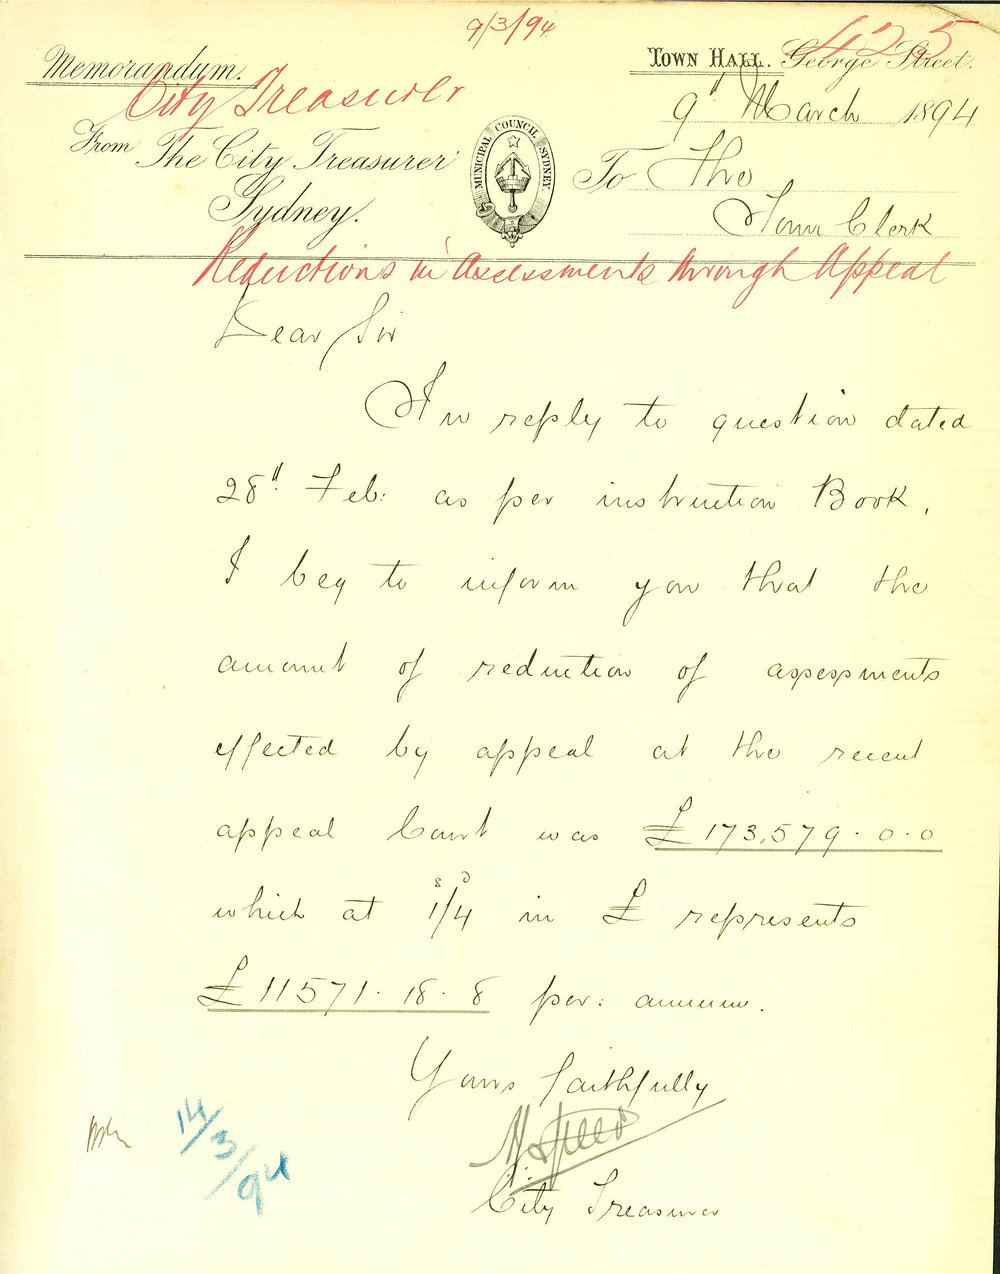 9/3/94
425
Memorandum.
TOWN HALL. George Street.
City Treasurer
9" March 1894
From The City Treasurer
Sydney.
MUNICIPAL COUNCIL SYDNEY.
To The
Town Clerk
Reductions in Assessments through Appeal
Dear Sir
In reply to question dated
28" Feb: as per instruction Book,
I beg to inform you that the
amount of reduction of assessments
effected by appeal at the recent
appeal Court was £173,579.0.0
which at 1s/4d in £ represents
£11571.18.8 per: annum.
Yours faithfully
City Treasurer
14/3/94